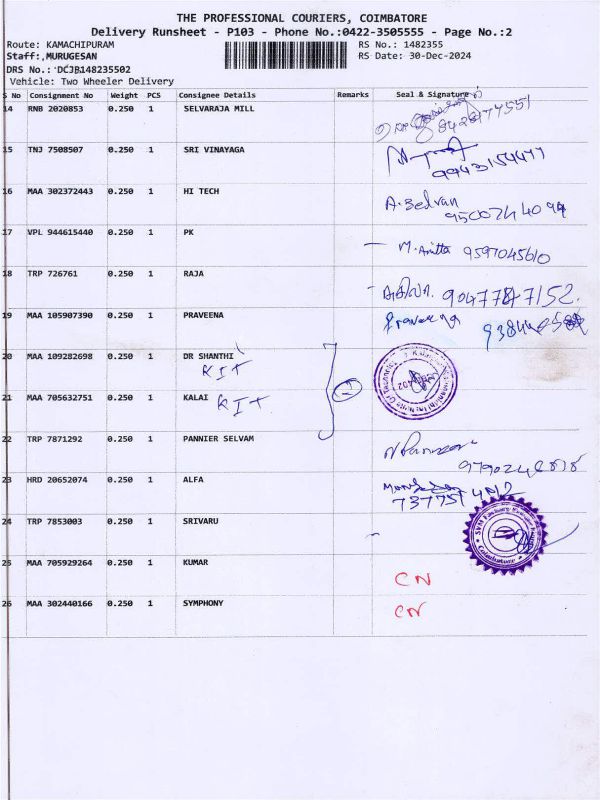 THE PROFESSIONAL COURIERS, COIMBATORE
Delivery Runsheet - P103 - Phone No.:0422-3505555 - Page No.:2
Route: KAMACHIPURAM RS No.: 1482355
Staff:,MURUGESAN RS Date: 30-Dec-2024
DRS No.: DCJB148235502
Vehicle: Two Wheeler Delivery
S No Consignment No Weight PCS Consignee Details Remarks Seal & Signature
14 RNB 2020853 0.250 1 SELVARAJA MILL
15 TNJ 7508507 0.250 1 SRI VINAYAGA
16 MAA 302372443 0.250 1 HI TECH A.Selvan
17 VPL 944615440 0.250 1 PK M.Anitta 9597045610
18 TRP 726761 0.250 1 RAJA
19 MAA 105907390 0.250 1 PRAVEENA Praveena
20 MAA 109282698 0.250 1 DR SHANTHI
KIT
21 MAA 705632751 0.250 1 KALAI KIT
22 TRP 7871292 0.250 1 PANNIER SELVAM
23 HRD 20652074 0.250 1 ALFA
24 TRP 7853003 0.250 1 SRIVARU
25 MAA 705929264 0.250 1 KUMAR CN
26 MAA 302440166 0.250 1 SYMPHONY CN